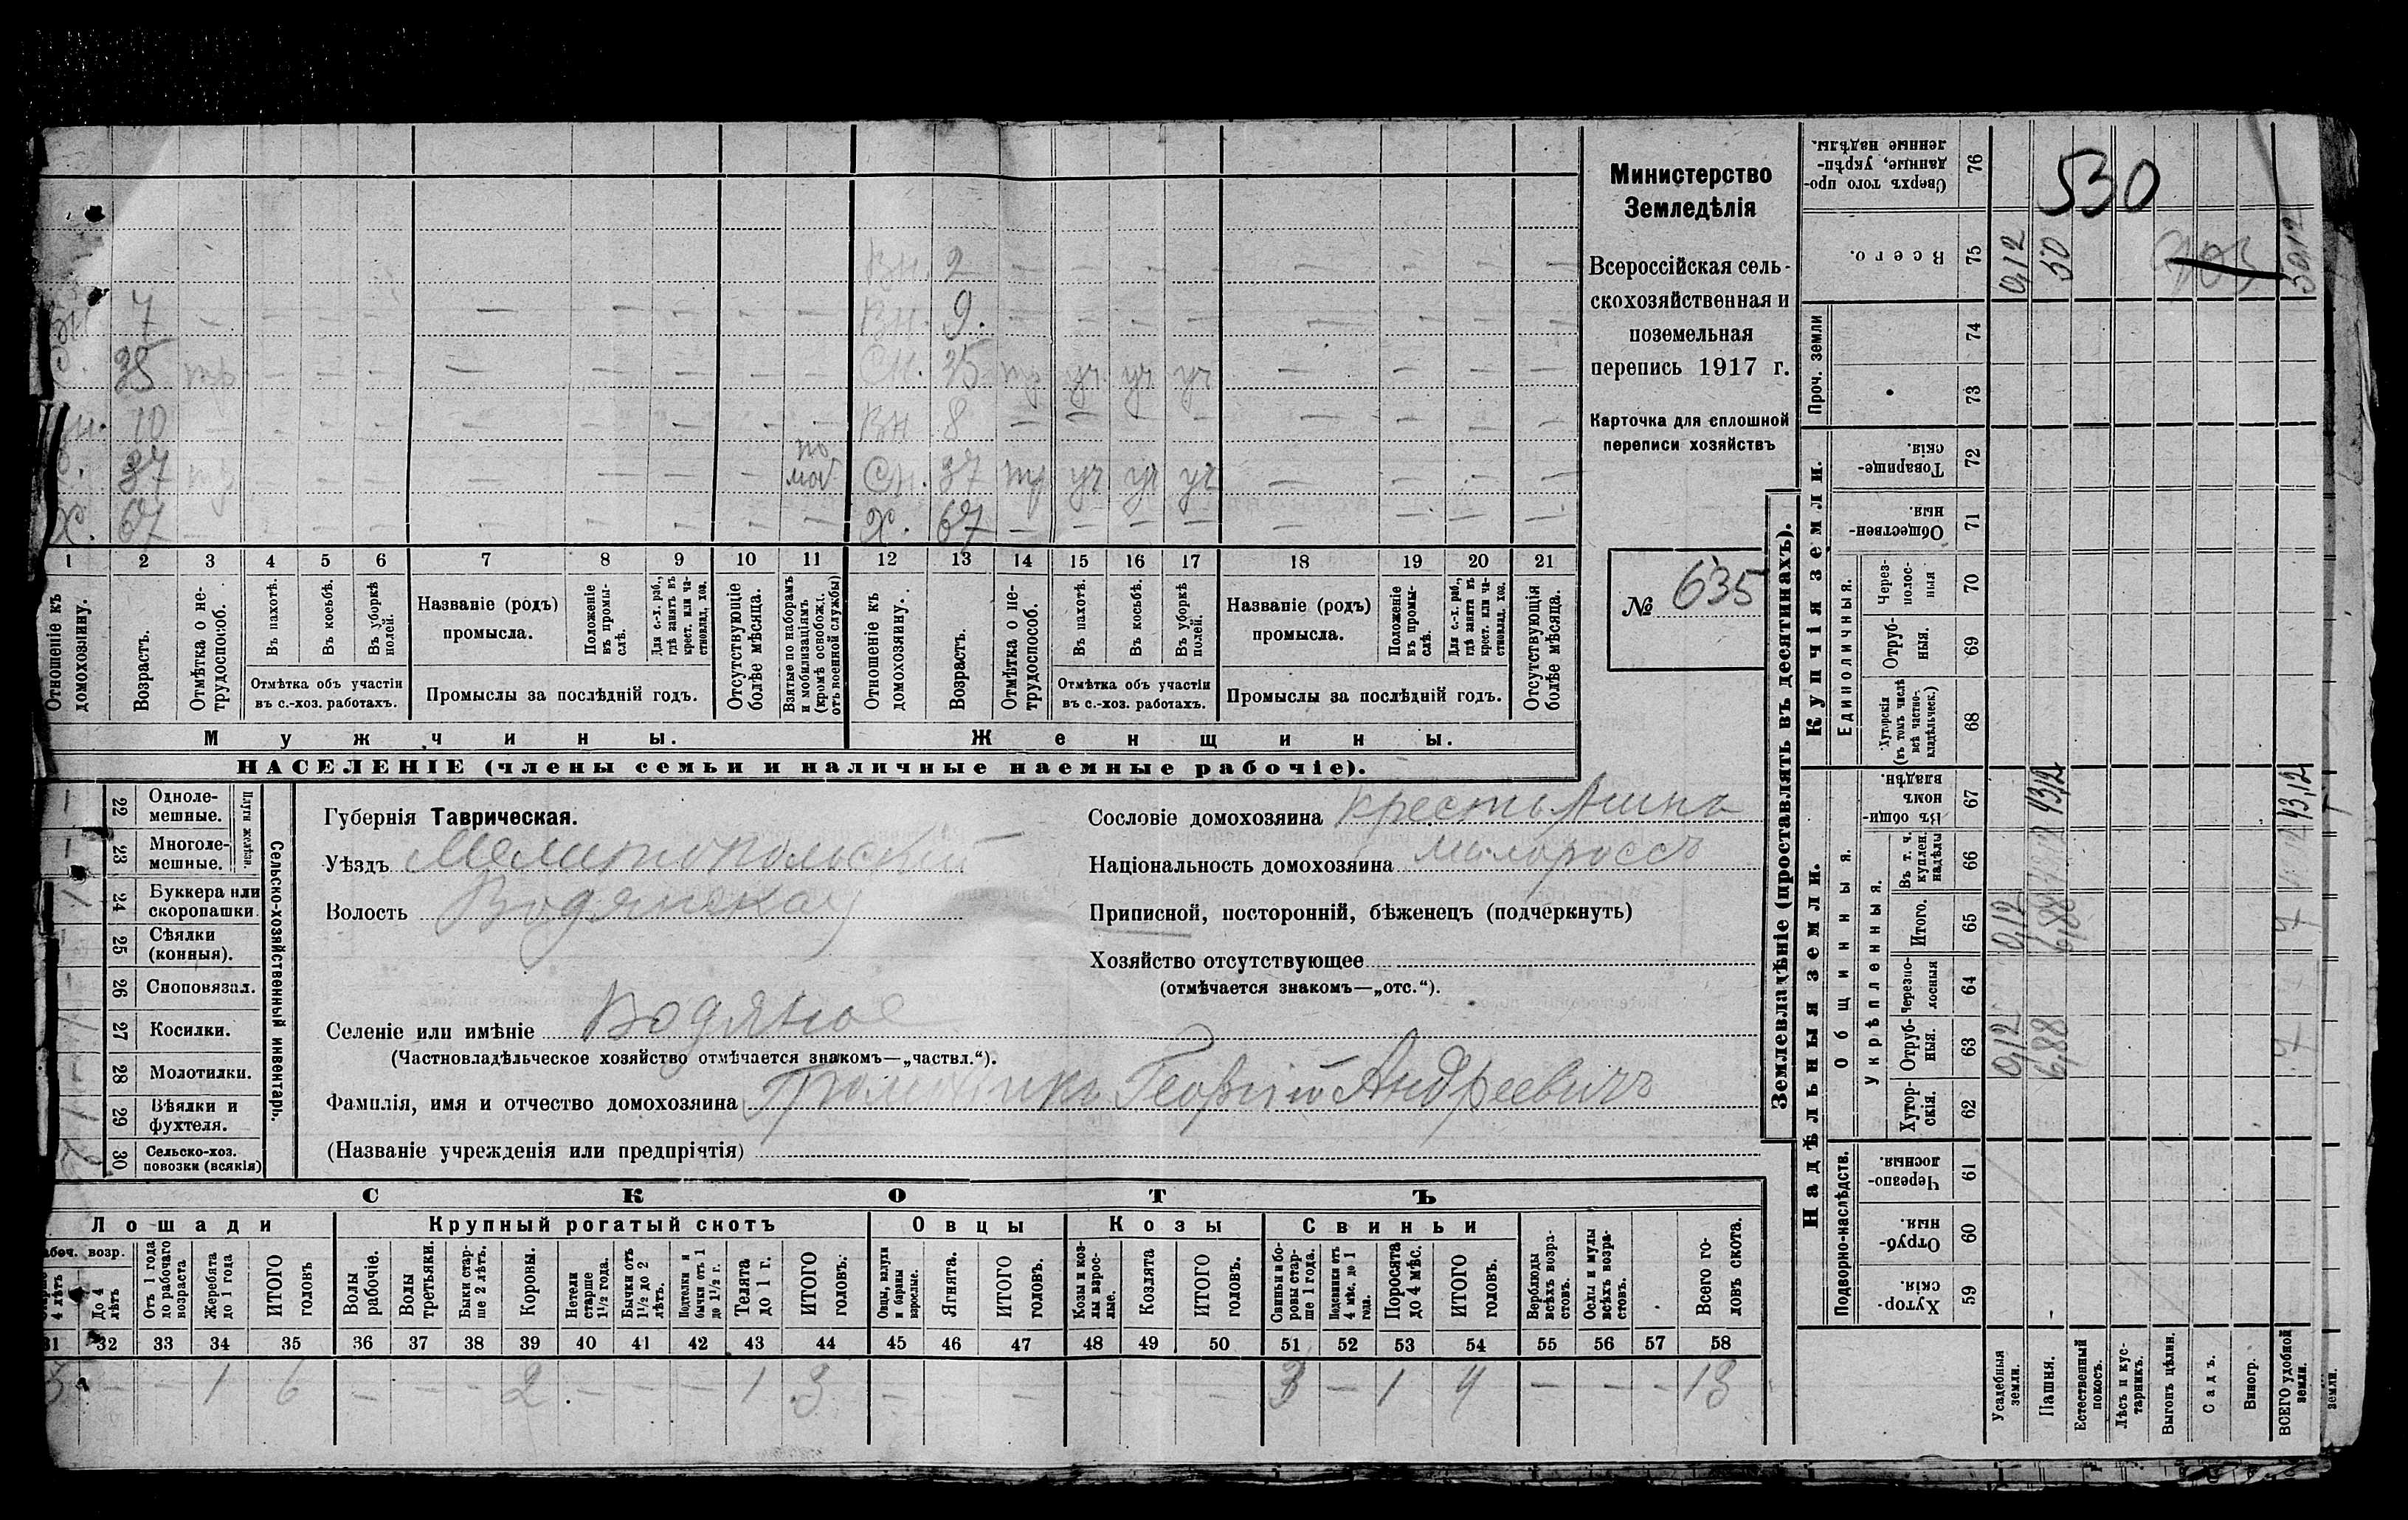 530
Вн. 2 — — — — — — — —
7 — — — — — — — — Вн. 9. — — — — — — — —
35 — — — — — — — — См. 35 уч уч уч — — — —
10 — — — — — — — — — Вн. 8 — — — — — — — —
по
37 — — — — — — — моб См. 37 уч уч уч — — — —
Х. 67 — — — — — — — — — Х. 67 — — — — — — — —
1 2 3 4 5 6 7 8 9 10 11 12 13 14 15 16 17 18 19 20 21
Отношеніе къ домохозяину.
Возрастъ.
Отмѣтка о не-
трудоспособ.
Въ пахотѣ.
Въ косьбѣ.
Въ уборкѣ полей.
Отмѣтка объ участіи
въ с.-хоз. работахъ.
Названіе (родъ)
промысла.
Положеніе въ промы-
слѣ.
Для с.-х. раб., гдѣ занятъ въ крест. или ча-
стновлад. хоз.
Промыслы за послѣдній годъ.
Отсутствующіе болѣе мѣсяца.
Взятые по наборамъ и мобилизаціямъ (кромѣ освобожд. отъ военной службы)
Отношеніе къ домохозяину.
Возрастъ.
Отмѣтка о не-
трудоспособ.
Въ пахотѣ.
Въ косьбѣ.
Въ уборкѣ полей.
Отмѣтка объ участіи
въ с.-хоз. работахъ.
Названіе (родъ)
промысла.
Положеніе въ промы-
слѣ.
Для с.-х. раб., гдѣ занята въ крест. или ча-
стновлад. хоз.
Промыслы за послѣдній годъ.
Отсутствующія болѣе мѣсяца.
Мужчины.
Женщины.
НАСЕЛЕНІЕ (члены семьи и наличные наемные рабочіе).
Министерство
Земледѣлія
Всероссійская сель-
скохозяйственная и
поземельная
перепись 1917 г.
Карточка для сплошной
переписи хозяйствъ
№ 635
Сельско-хозяйственный инвентарь.
Плуги желѣзн.
22 Одноле-
мешные.
23 Многоле-
мешные.
24 Буккера или
скоропашки.
25 Сѣялки
(конныя).
26 Сноповязал.
27 Косилки.
28 Молотилки.
29 Вѣялки и
фухтеля.
30 Сельско-хоз.
повозки (всякія)
Губернія Таврическая.
Уѣздъ Мелитопольскій
Волость Водянская
Селеніе или имѣніе Водяное
(Частновладѣльческое хозяйство отмѣчается знакомъ—„частвл.“).
Фамилія, имя и отчество домохозяина Георгій Андреевичъ
(Названіе учрежденія или предпріятія)
Сословіе домохозяина крестьянинъ
Національность домохозяина малороссъ
Приписной, посторонній, бѣженецъ (подчеркнуть)
Хозяйство отсутствующее
(отмѣчается знакомъ—„отс.“).
СКОТЪ
Лошади
Крупный рогатый скотъ
Овцы
Козы
Свиньи
возр.
4 лѣтъ
До 4 лѣтъ
Отъ 1 года до рабочаго возраста
Жеребята до 1 года
ИТОГО головъ
Волы рабочіе.
Волы третьяки.
Быки стар-
ше 2 лѣтъ.
Коровы.
Нетели старше 1½ года.
Бычки отъ 1½ до 2 лѣтъ.
Подтелки и бычки отъ 1 до 1½ г.
Телята до 1 г.
ИТОГО головъ.
Овцы, валухи и бараны взрослые.
Ягнята.
ИТОГО головъ.
Козы и коз-
лы взрос-
лые.
Козлята
ИТОГО головъ.
Свиньи и бо-
ровы стар-
ше 1 года.
Подсвинки отъ 4 мѣс. до 1 года.
Поросята до 4 мѣс.
ИТОГО головъ.
Верблюды всѣхъ возра-
стовъ.
Ослы и мулы всѣхъ возра-
стовъ.
Всего го-
ловъ скота.
31 32 33 34 35 36 37 38 39 40 41 42 43 44 45 46 47 48 49 50 51 52 53 54 55 56 57 58
— — 1 6 — — — 2 — — — 1 3 — — — — — — 3 — 1 4 — — — 13
Землевладѣніе (проставлять въ десятинахъ).
Надѣльныя земли.
Купчія земли.
Проч. земли
Сверхъ того про-
данные, укрѣп-
ленные надѣлы.
76
Всего.
75 0,12 50 50,12
74
73
Товарище-
скія.
72
Обществен-
ныя.
71
Единоличныя.
Через-
полос-
ныя
70
Отруб-
ныя.
69
Хуторскія
(въ томъ числѣ
всѣ частно-
владѣльческ.)
68
Общинныя.
Въ общин-
номъ
владѣн.
67 43,12 43,12
Укрѣпленныя.
Въ т. ч.
куплен.
надѣлы
66
Итого.
65 0,12 6,88 7
Черезпо-
лосныя
64
Отруб-
ныя.
63 0,12 6,88 7
Хутор-
скія.
62
Подворно-наслѣдств.
Черезпо-
лосныя.
61
Отруб-
ныя.
60
Хутор-
скія.
59
Усадебныя земли.
Пашня.
Естественный покосъ.
Лѣсъ и кус-
тарникъ.
Выгонъ цѣлин.
Садъ.
Виногр.
ВСЕГО удобной земли.
земли.